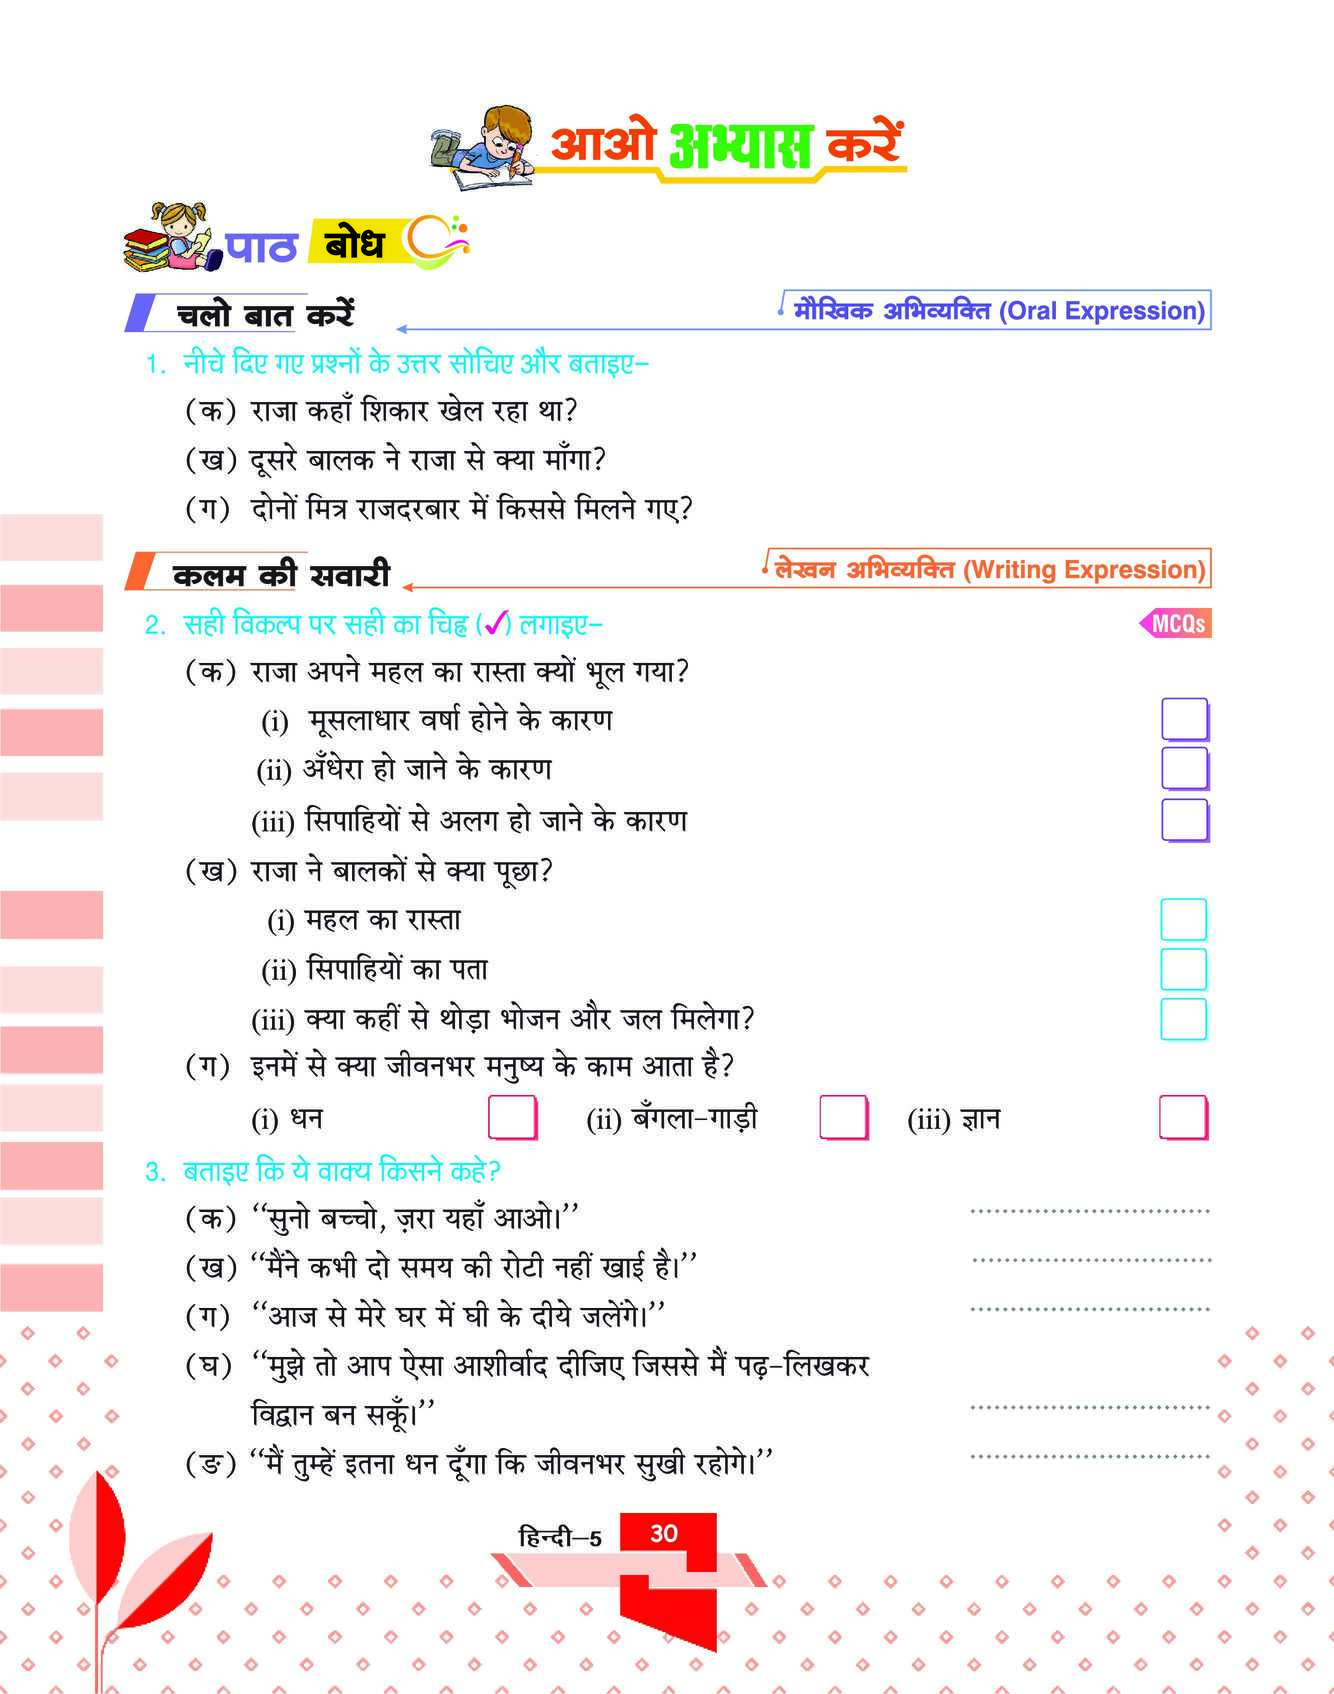 आओ अभ्यास करें
पाठ बोध
चलो बात करें
मौखिक अभिव्यक्ति (Oral Expression)
1. नीचे दिए गए प्रश्नों के उत्तर सोचिए और बताइए–
(क) राजा कहाँ शिकार खेल रहा था?
(ख) दूसरे बालक ने राजा से क्या माँगा?
(ग) दोनों मित्र राजदरबार में किससे मिलने गए?
कलम की सवारी
लेखन अभिव्यक्ति (Writing Expression)
2. सही विकल्प पर सही का चिह्न (✓) लगाइए–
MCQs
(क) राजा अपने महल का रास्ता क्यों भूल गया?
(i) मूसलाधार वर्षा होने के कारण
(ii) अँधेरा हो जाने के कारण
(iii) सिपाहियों से अलग हो जाने के कारण
(ख) राजा ने बालकों से क्या पूछा?
(i) महल का रास्ता
(ii) सिपाहियों का पता
(iii) क्या कहीं से थोड़ा भोजन और जल मिलेगा?
(ग) इनमें से क्या जीवनभर मनुष्य के काम आता है?
(i) धन (ii) बँगला-गाड़ी (iii) ज्ञान
3. बताइए कि ये वाक्य किसने कहे?
(क) ‘‘सुनो बच्चो, ज़रा यहाँ आओ।’’ ..............................
(ख) ‘‘मैंने कभी दो समय की रोटी नहीं खाई है।’’ ..............................
(ग) ‘‘आज से मेरे घर में घी के दीये जलेंगे।’’ ..............................
(घ) ‘‘मुझे तो आप ऐसा आशीर्वाद दीजिए जिससे मैं पढ़-लिखकर
विद्वान बन सकूँ।’’ ..............................
(ङ) ‘‘मैं तुम्हें इतना धन दूँगा कि जीवनभर सुखी रहोगे।’’ ..............................
हिन्दी–5 30